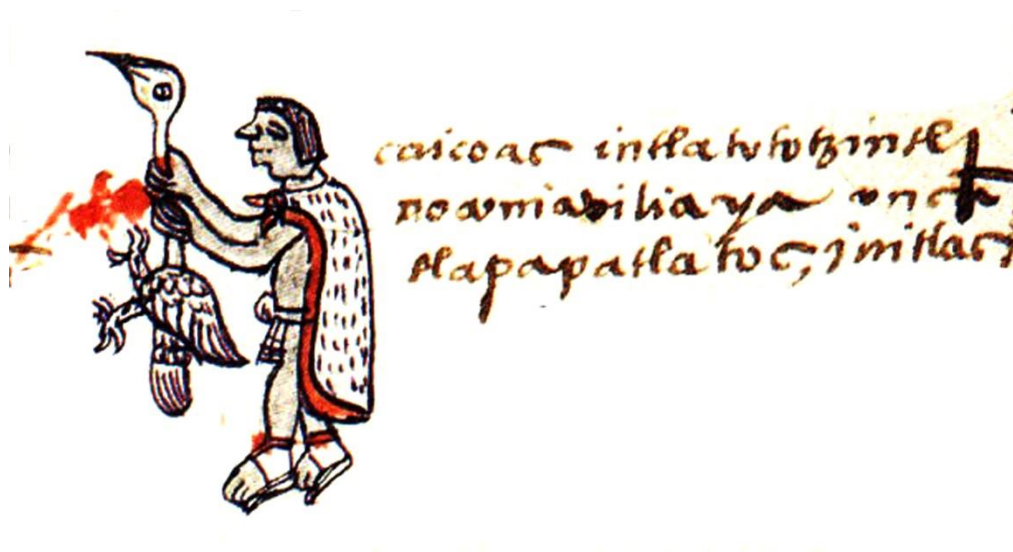 caicoac intlatutotzintli
noamiavilia ya unca
tlapapatlatoc, initlac